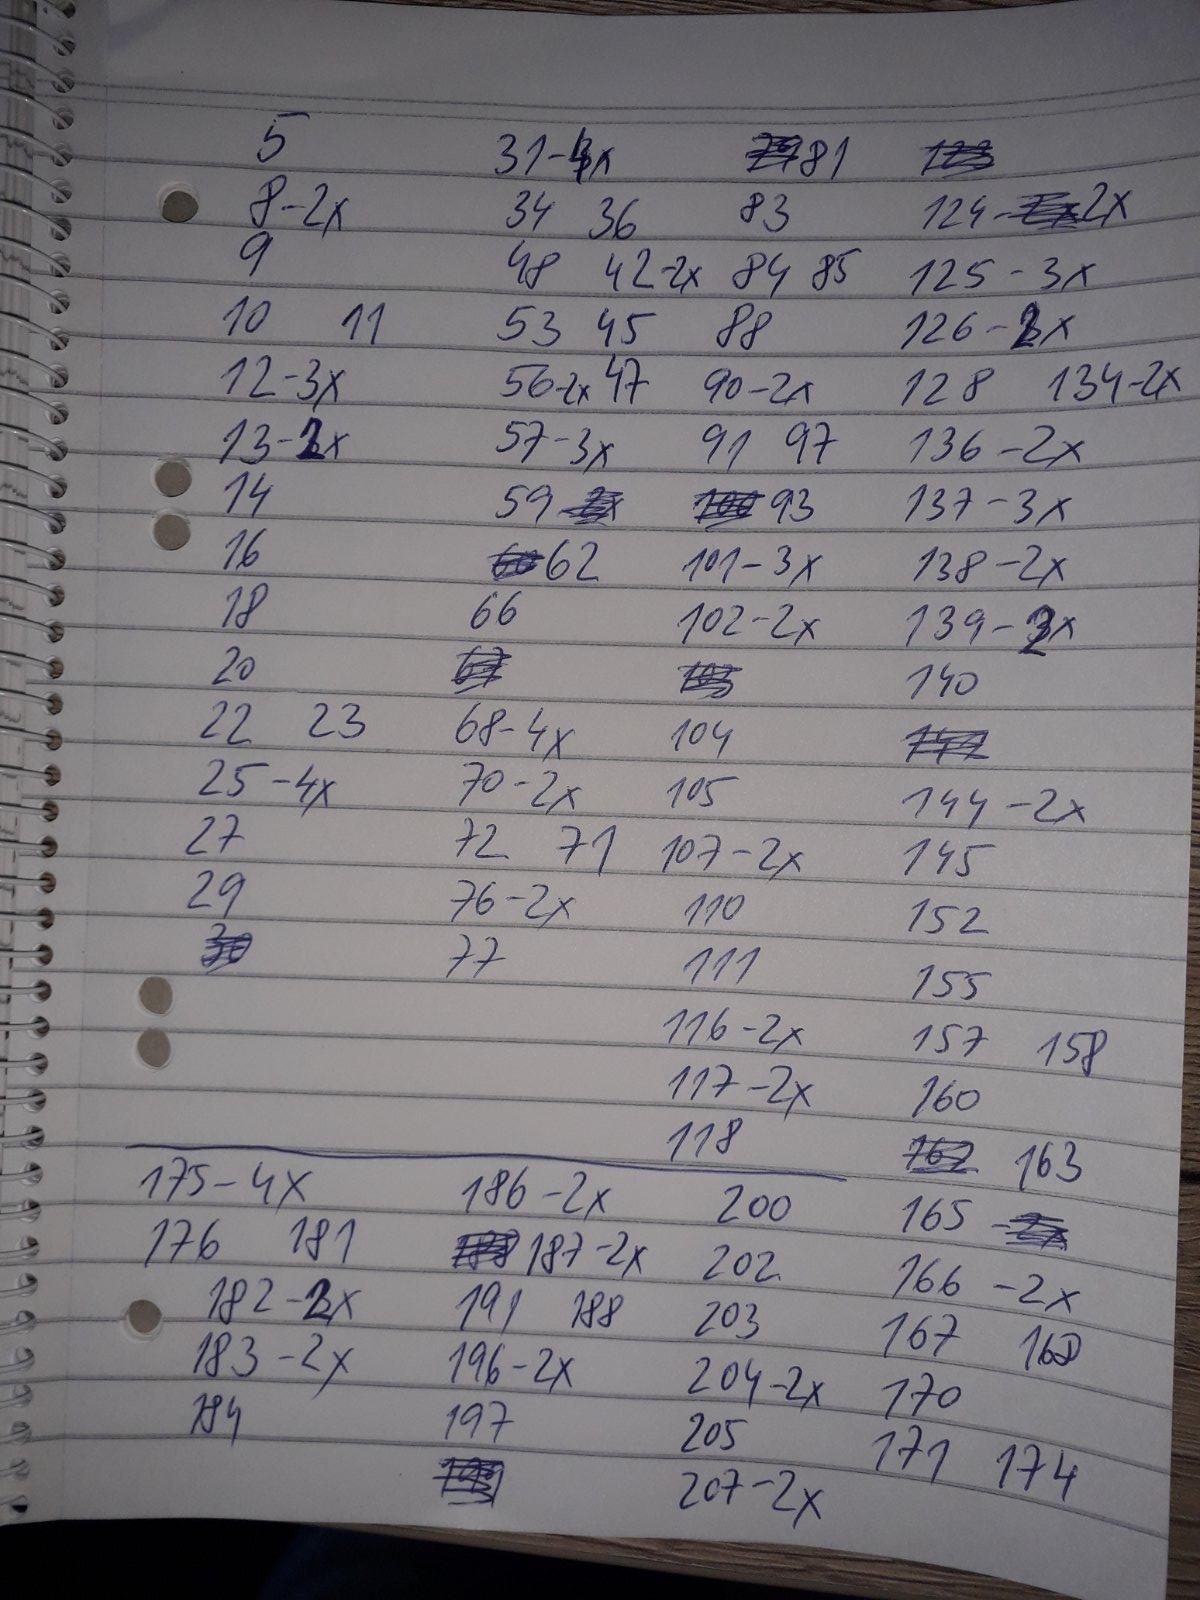 5 31- x 81
8-2x 34 36 83 124- 2x
9 48 42-2x 84 85 125-3x
10 11 53 45 88 126-2x
12-3x 56-2x 47 90-2x 128 134-2x
13-2x 57-3x 91 97 136-2x
14 59 93 137-3x
16 62 101-3x 138-2x
18 66 102-2x 139-2x
20 140
22 23 68-4x 104
25-4x 70-2x 105 144-2x
27 72 71 107-2x 145
29 76-2x 110 152
77 111 155
116-2x 157 158
117-2x 160
118 163
175-4x 186-2x 200 165
176 181 187-2x 202 166-2x
182-2x 191 188 203 167 168
183-2x 196-2x 204-2x 170
184 197 205 171 174
207-2x